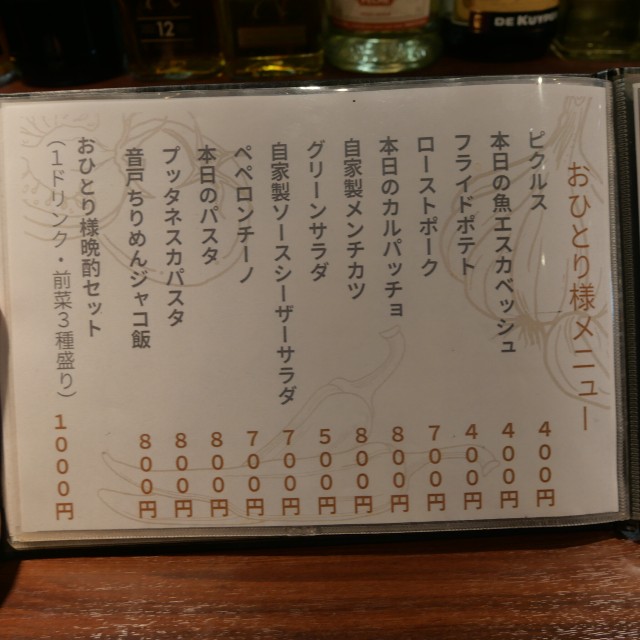 12
DE KUYPER
おひとり様メニュー
ピクルス 400円
本日の魚エスカベッシュ 400円
フライドポテト 400円
ローストポーク 700円
本日のカルパッチョ 800円
自家製メンチカツ 800円
グリーンサラダ 500円
自家製ソースシーザーサラダ 700円
ペペロンチーノ 700円
本日のパスタ 800円
プッタネスカパスタ 800円
音戸ちりめんジャコ飯 800円
おひとり様晩酌セット
(1ドリンク・前菜3種盛り) 1000円